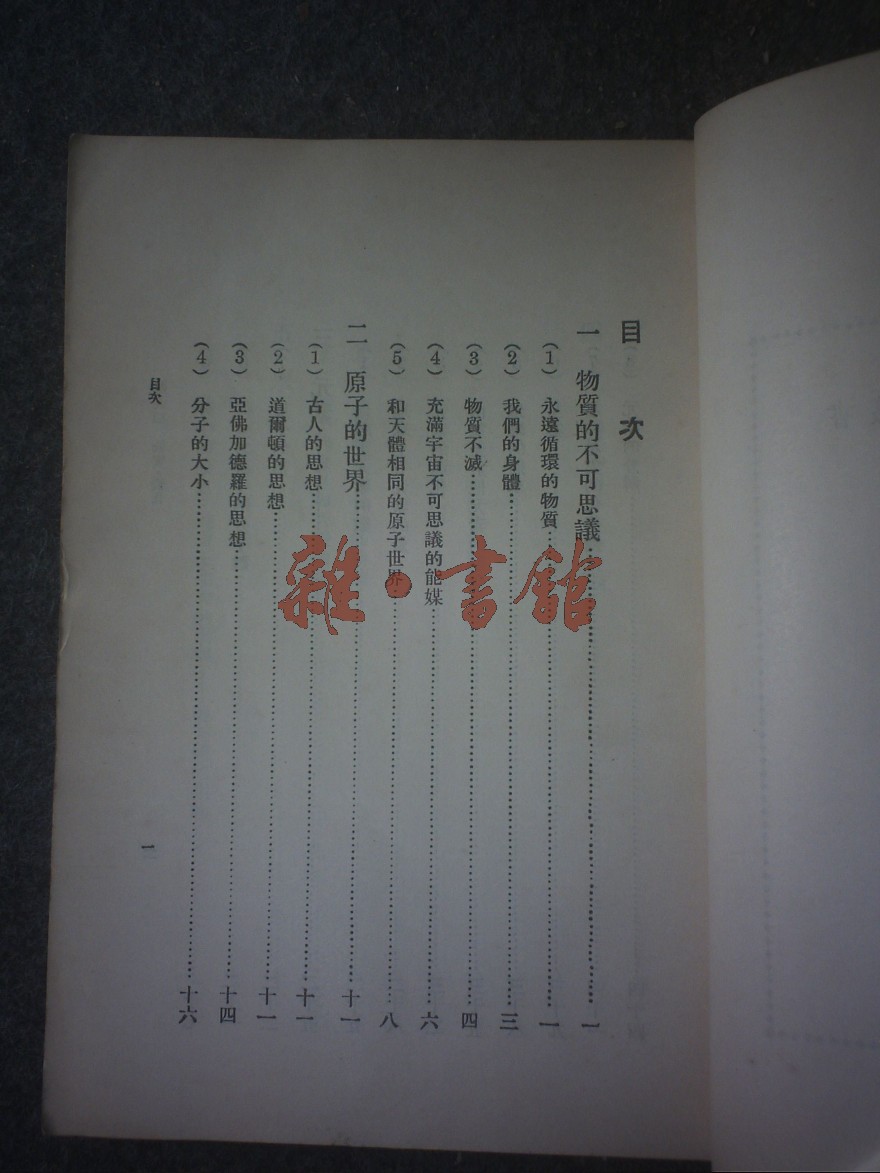 目次
一 物質的不可思議……一
(1) 永遠循環的物質……一
(2) 我們的身體……三
(3) 物質不滅……四
(4) 充滿宇宙不可思議的能媒……六
(5) 和天體相同的原子世界……八
二 原子的世界……十一
(1) 古人的思想……十一
(2) 道爾頓的思想……十一
(3) 亞佛加德羅的思想……十四
(4) 分子的大小……十六
目次
一
雜·書館